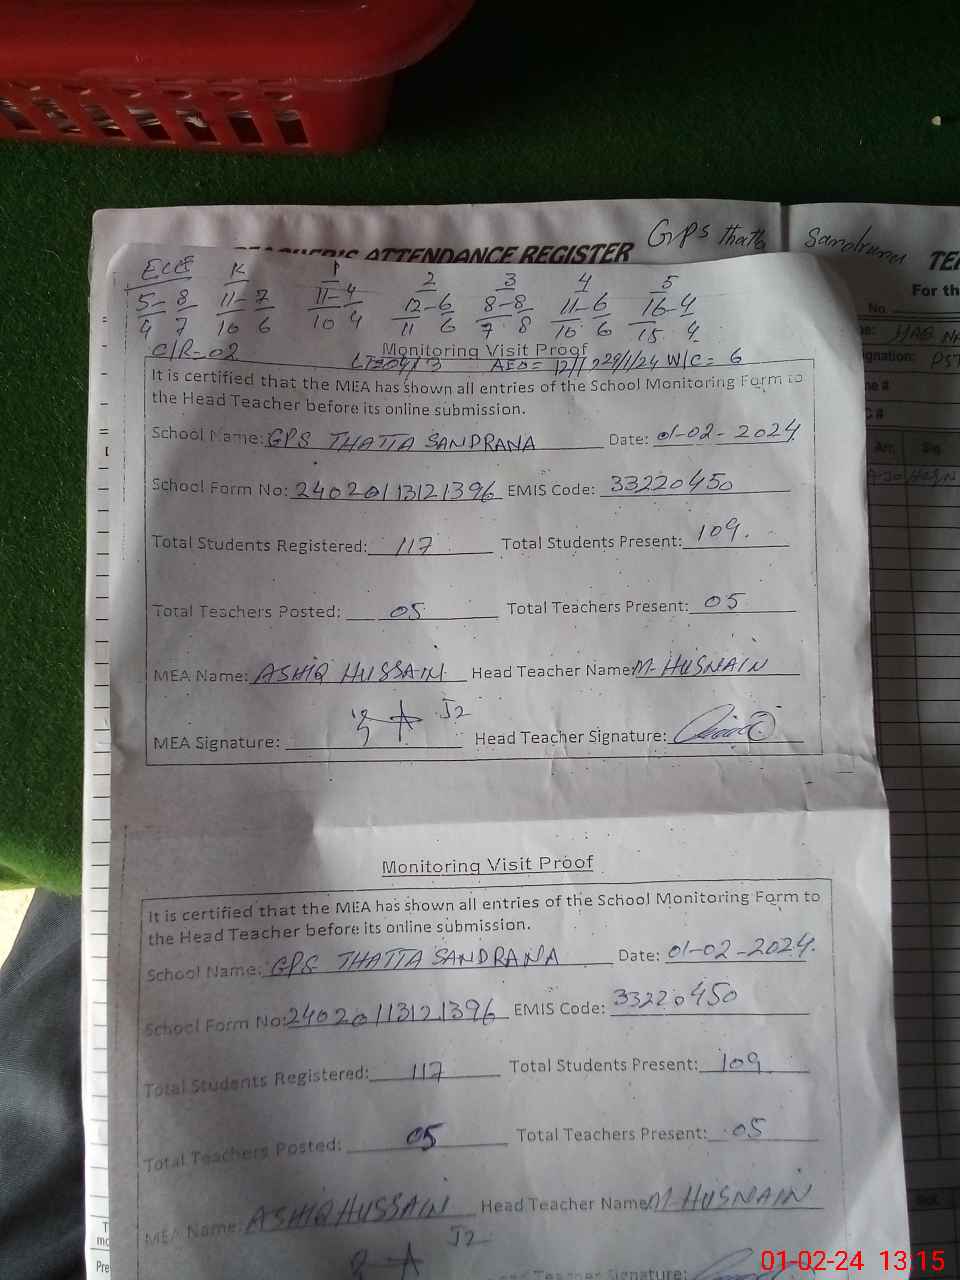 TEACHER'S ATTENDANCE REGISTER GPS Thatta Sandrana
For th
No.
HAQ NA
PST
ECCE K 1 2 3 4 5
5-8 11-7 11-4 12-6 8-8 11-6 16-4
4 7 10 6 10 4 11 6 7 8 10 6 15 4
C/R-02
Monitoring Visit Proof
AEO= 12/1, 29/1/24 W/C= 6
It is certified that the MEA has shown all entries of the School Monitoring Form to
the Head Teacher before its online submission.
School Name: GPS THATTA SANDRANA Date: 01-02-2024
School Form No: 24020113121396 EMIS Code: 33220450
Total Students Registered: 117 Total Students Present: 109.
Total Teachers Posted: 05 Total Teachers Present: 05
MEA Name: ASHIQ HUSSAIN Head Teacher Name: M. HUSNAIN
J2
MEA Signature: Head Teacher Signature:
Monitoring Visit Proof
It is certified that the MEA has shown all entries of the School Monitoring Form to
the Head Teacher before its online submission.
School Name: GPS THATTA SANDRANA Date: 01-02-2024.
School Form No: 24020113121396 EMIS Code: 33220450
Total Students Registered: 117 Total Students Present: 109
Total Teachers Posted: 05 Total Teachers Present: 05
MEA Name: ASHIQ HUSSAIN Head Teacher Name: M. HUSNAIN
J2
Teacher Signature:
01-02-24 13:15